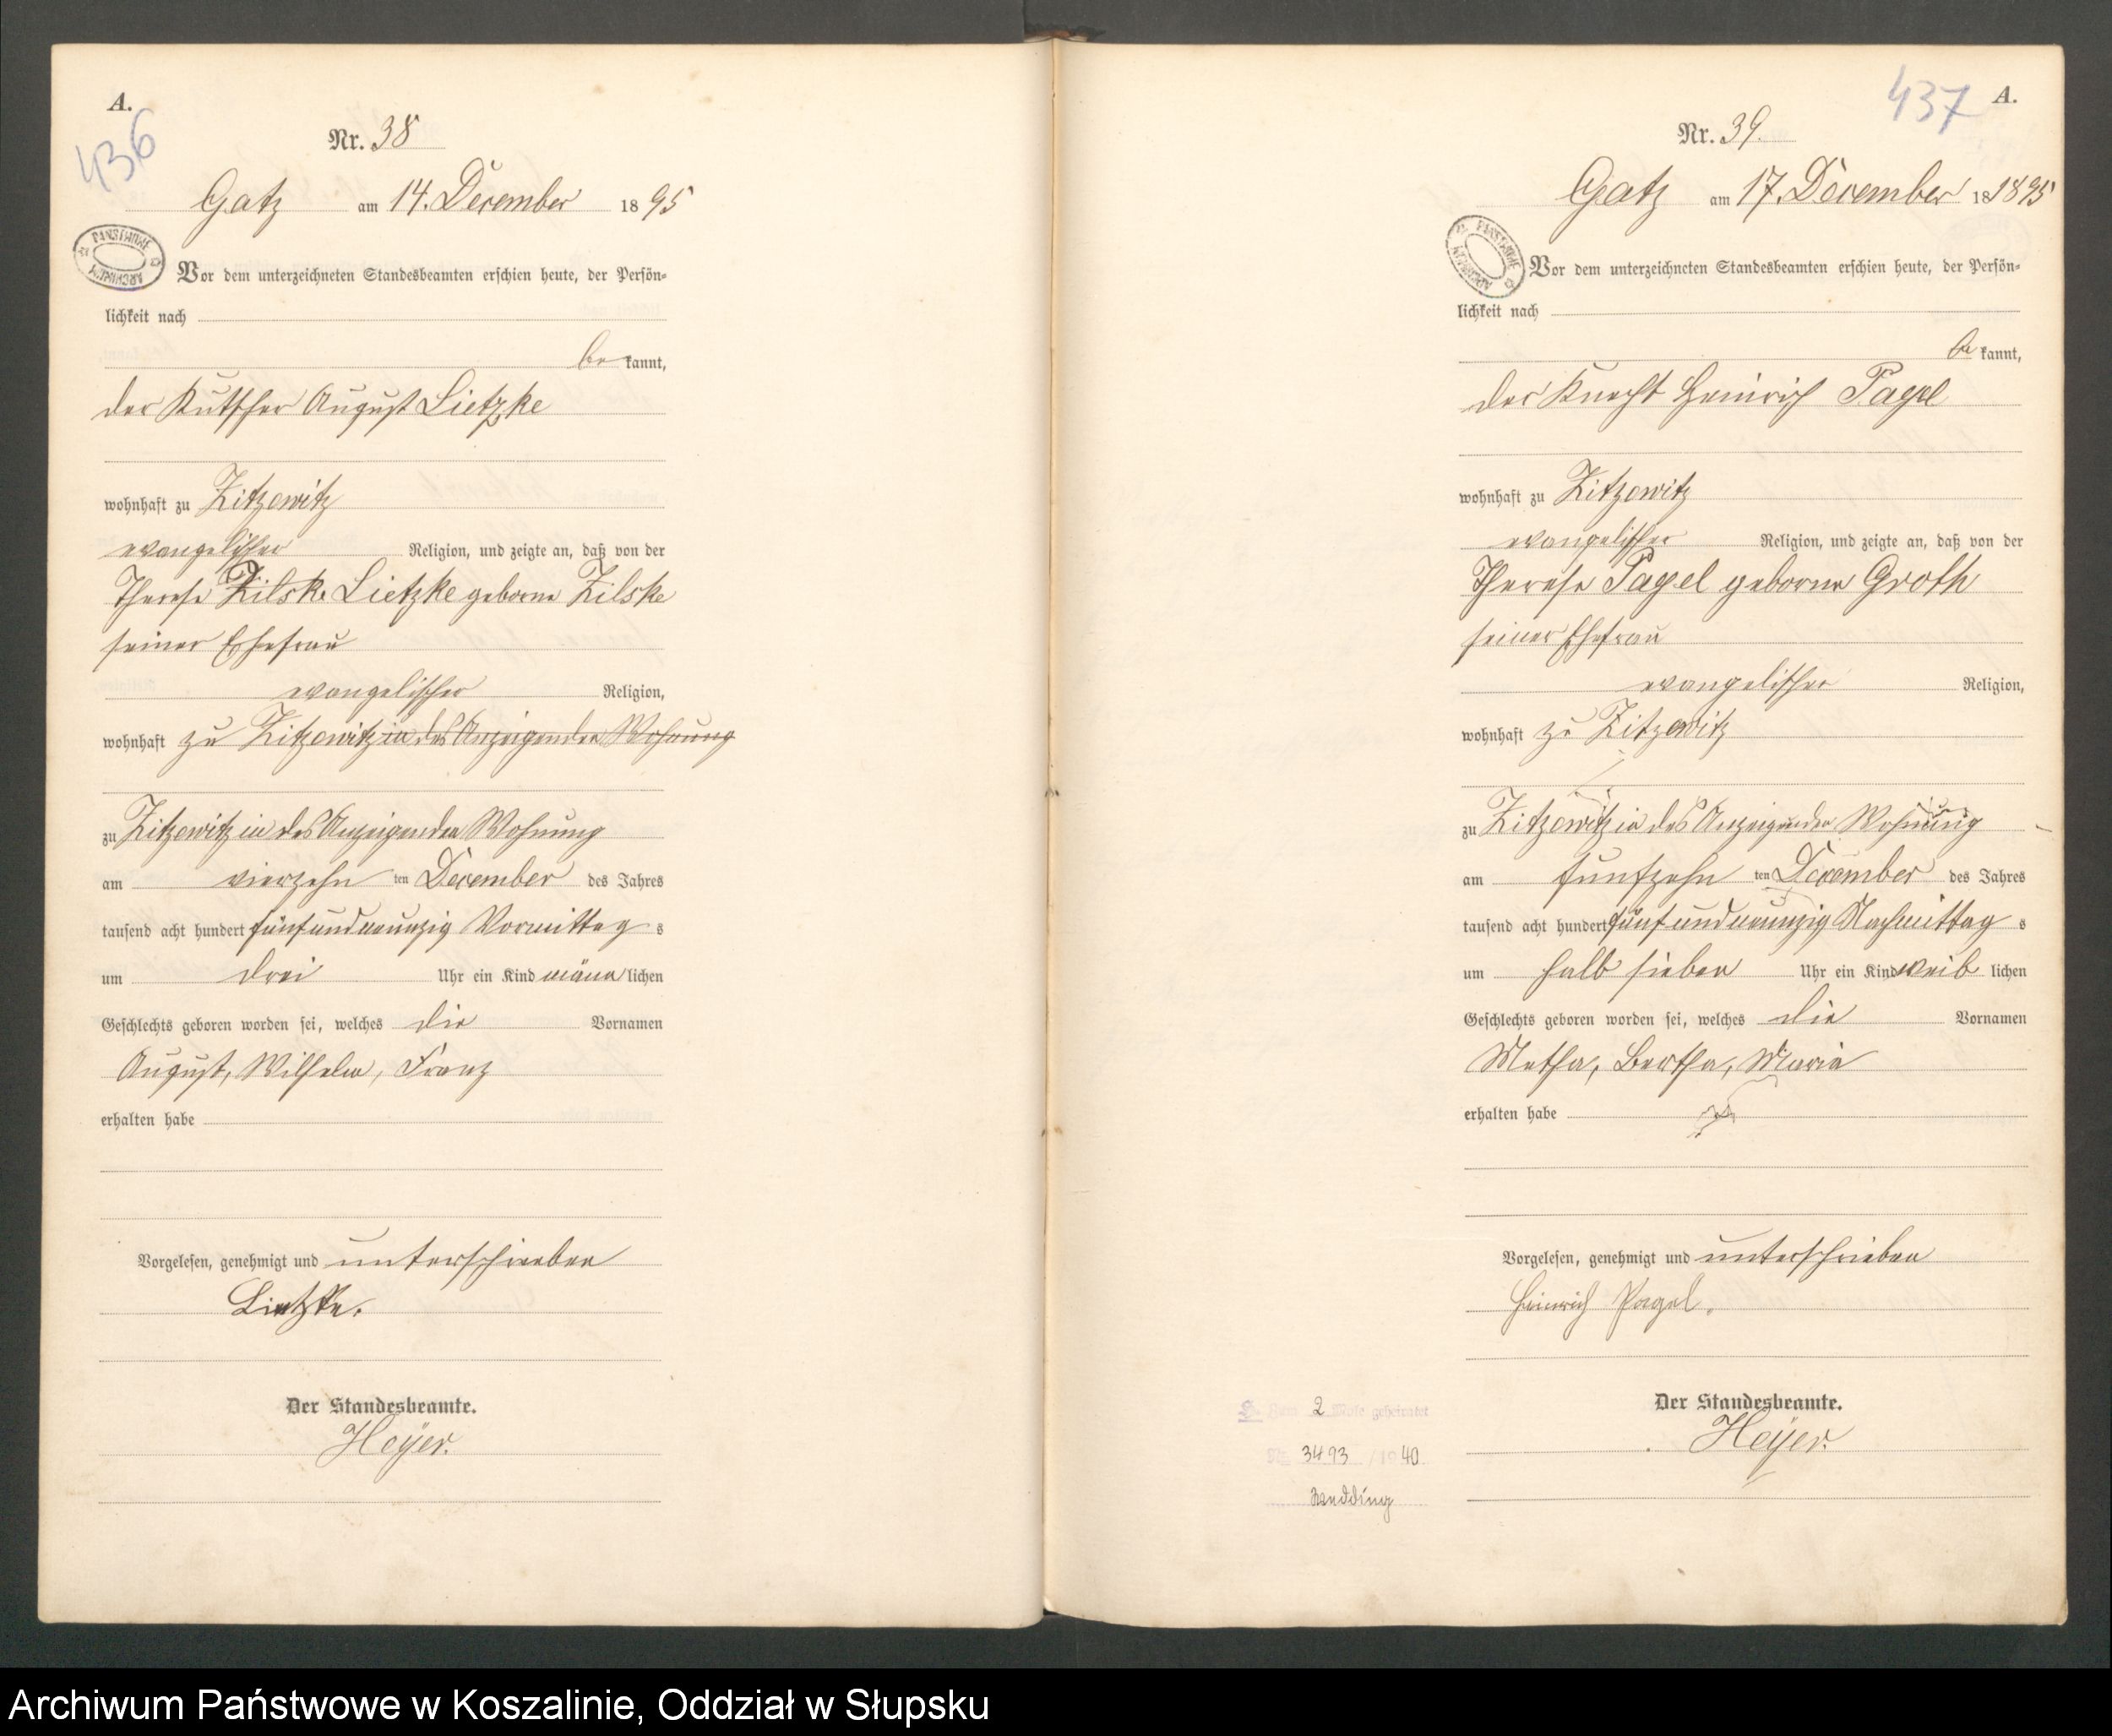 A.
436
Nr. 38
Gatz am 14. December 1895
PAŃSTWOWE ARCHIWUM
Vor dem unterzeichneten Standesbeamten erschien heute, der Persön-
lichkeit nach
be kannt,
der Kutscher August Lietzke
wohnhaft zu Zitzewitz
evangelischer Religion, und zeigte an, daß von der
Therese Zilske Lietzke geborne Zilske
seiner Ehefrau
evangelischer Religion,
wohnhaft zu Zitzewitz in des Anzeigenden Wohnung
zu Zitzewitz in des Anzeigenden Wohnung
am vierzehn ten December des Jahres
tausend acht hundert fünfundneunzig Vormittag s
um drei Uhr ein Kind männlichen
Geschlechts geboren worden sei, welches die Vornamen
August, Wilhelm, Franz
erhalten habe
Vorgelesen, genehmigt und unterschrieben
Lietzke.
Der Standesbeamte.
Heyer.
437
A.
Nr. 39.
Gatz am 17. December 181895
PAŃSTWOWE ARCHIWUM
Vor dem unterzeichneten Standesbeamten erschien heute, der Persön-
lichkeit nach
be kannt,
der Knecht Heinrich Pagel
wohnhaft zu Zitzewitz
evangelischer Religion, und zeigte an, daß von der
Therese Pagel geborne Groth
seiner Ehefrau
evangelischer Religion,
wohnhaft zu Zitzewitz
zu Zitzewitz in des Anzeigenden Wohnung
am fünfzehn ten December des Jahres
tausend acht hundert fünfundneunzig Nachmittag s
um halb sieben Uhr ein Kind weib lichen
Geschlechts geboren worden sei, welches die Vornamen
Metha, Bertha, Maria
erhalten habe
Vorgelesen, genehmigt und unterschrieben
Heinrich Pagel.
Der Standesbeamte.
Heyer.
Zum 2 Male geheiratet
Nr. 3493 /1940
Wedding
Archiwum Państwowe w Koszalinie, Oddział w Słupsku